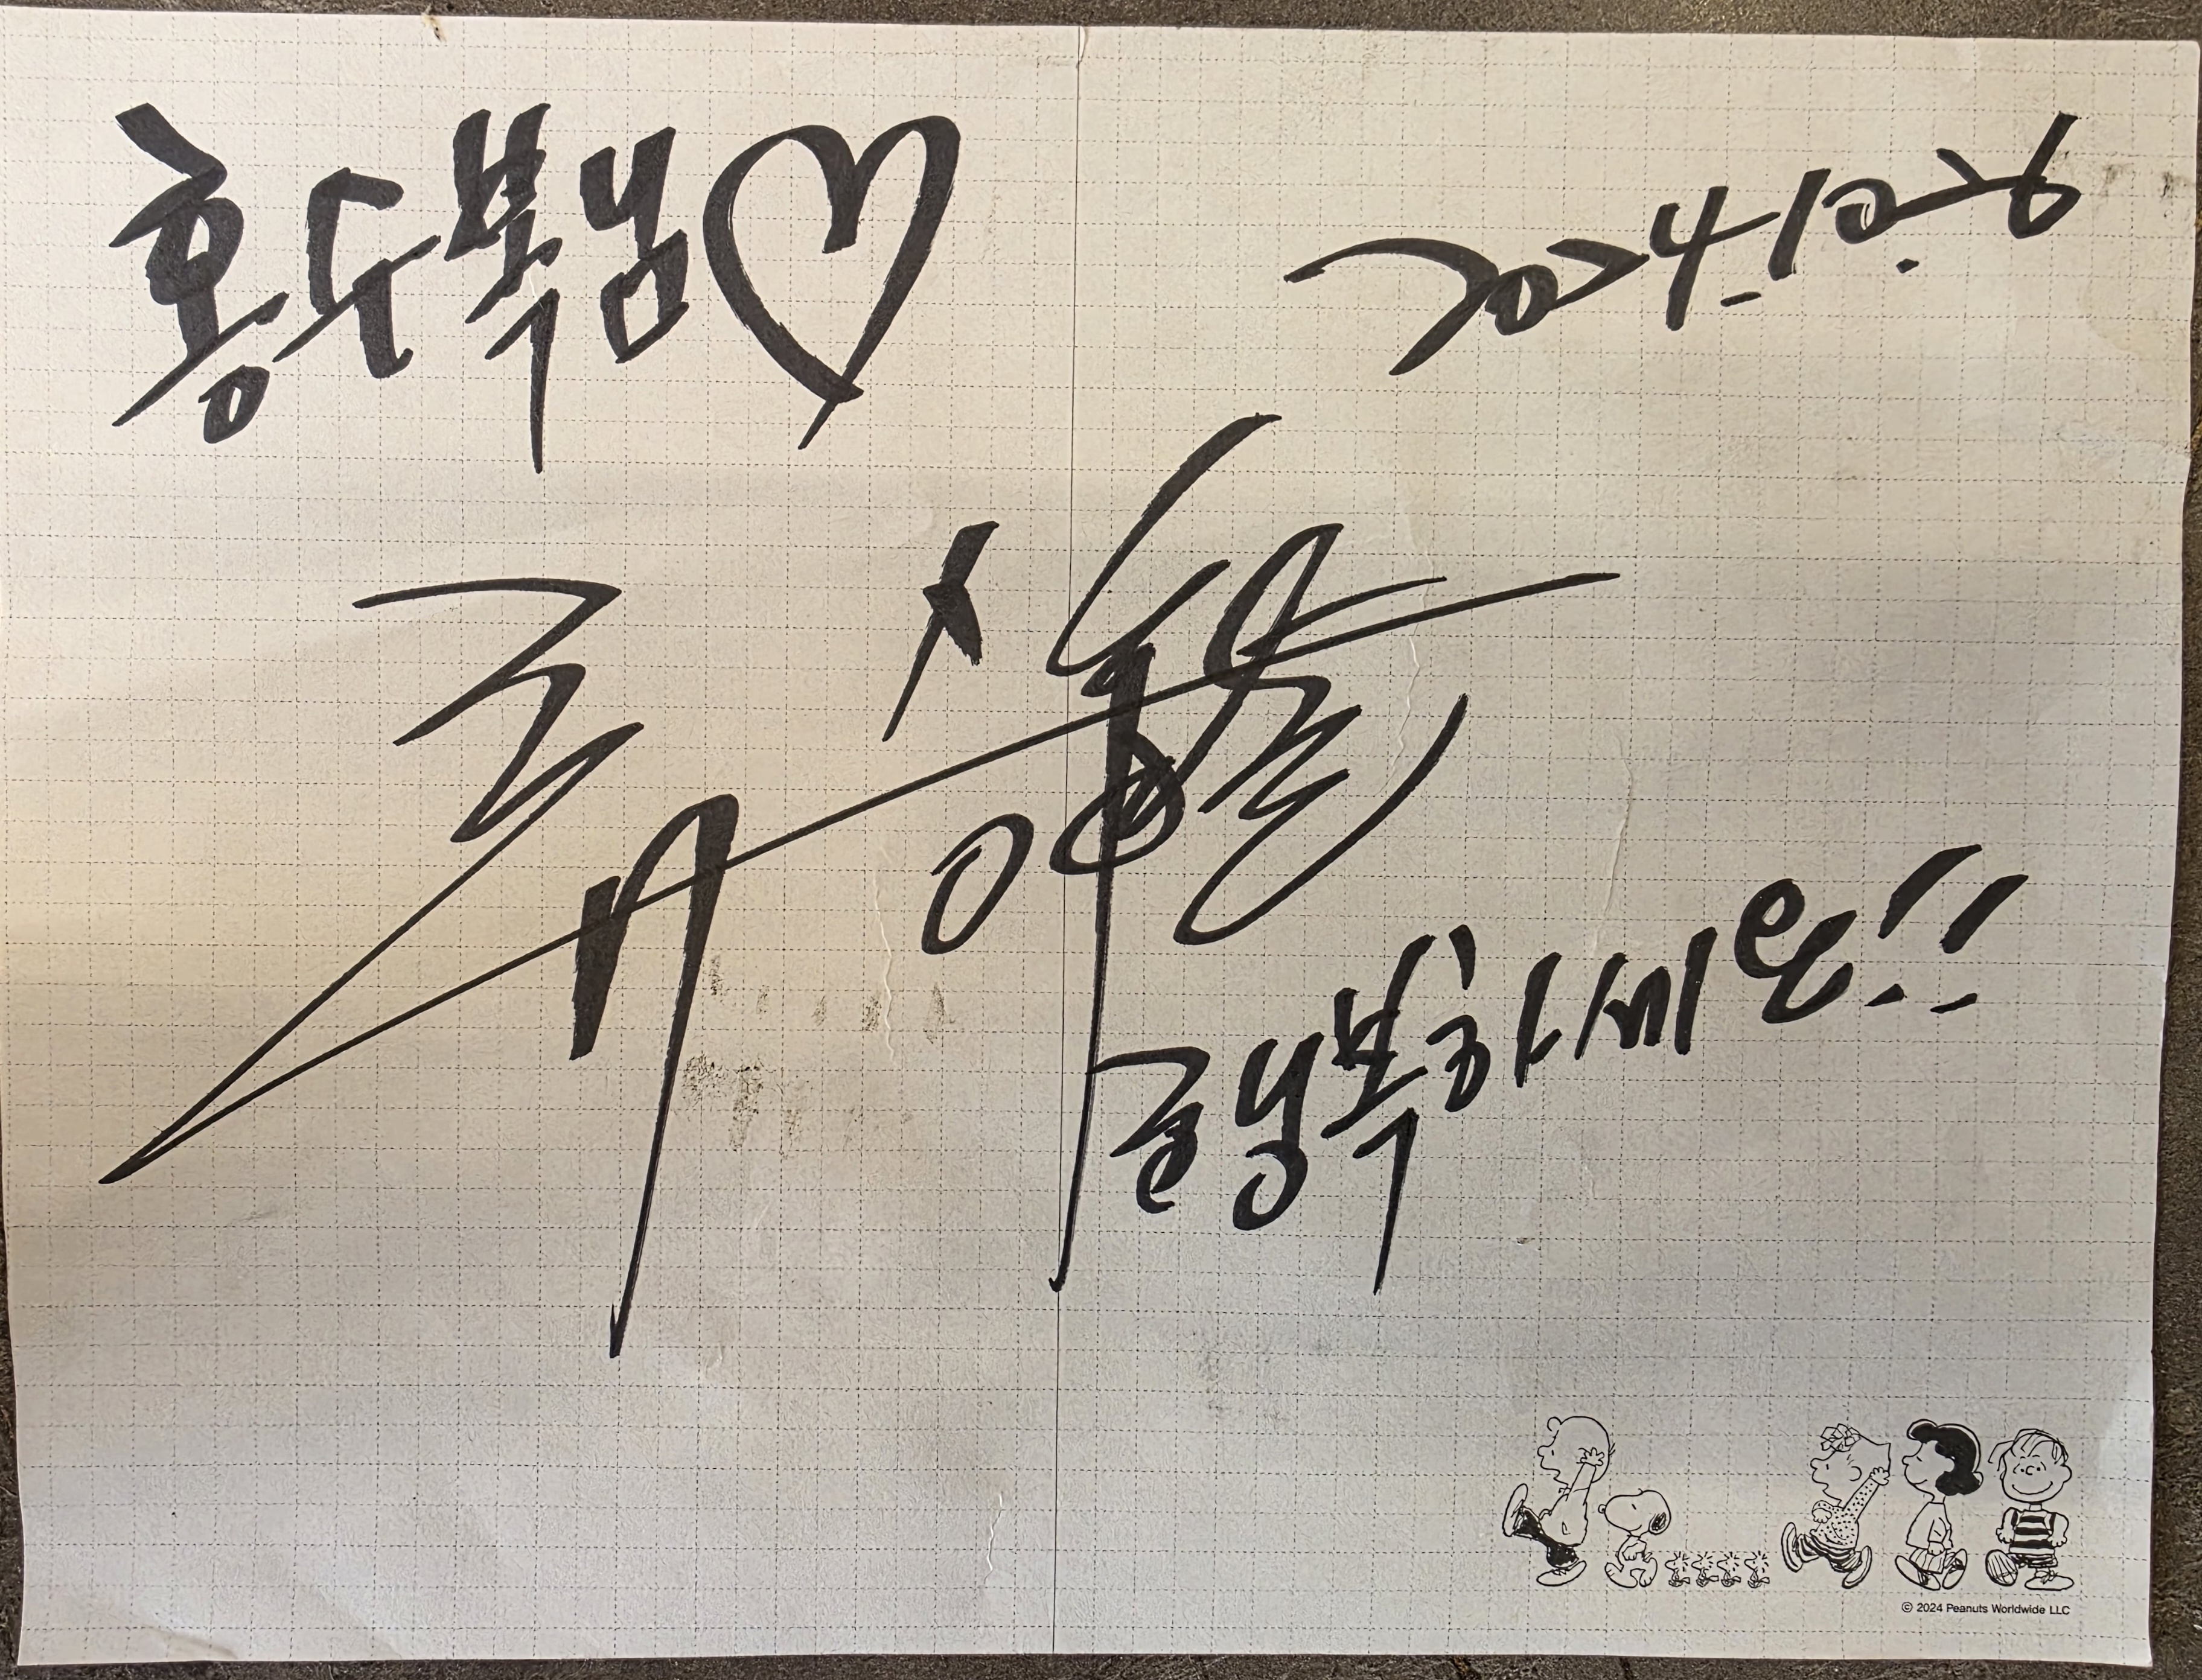 홍수복님♡
2024.10.26
류승룡
행복하세요!!
© 2024 Peanuts Worldwide LLC